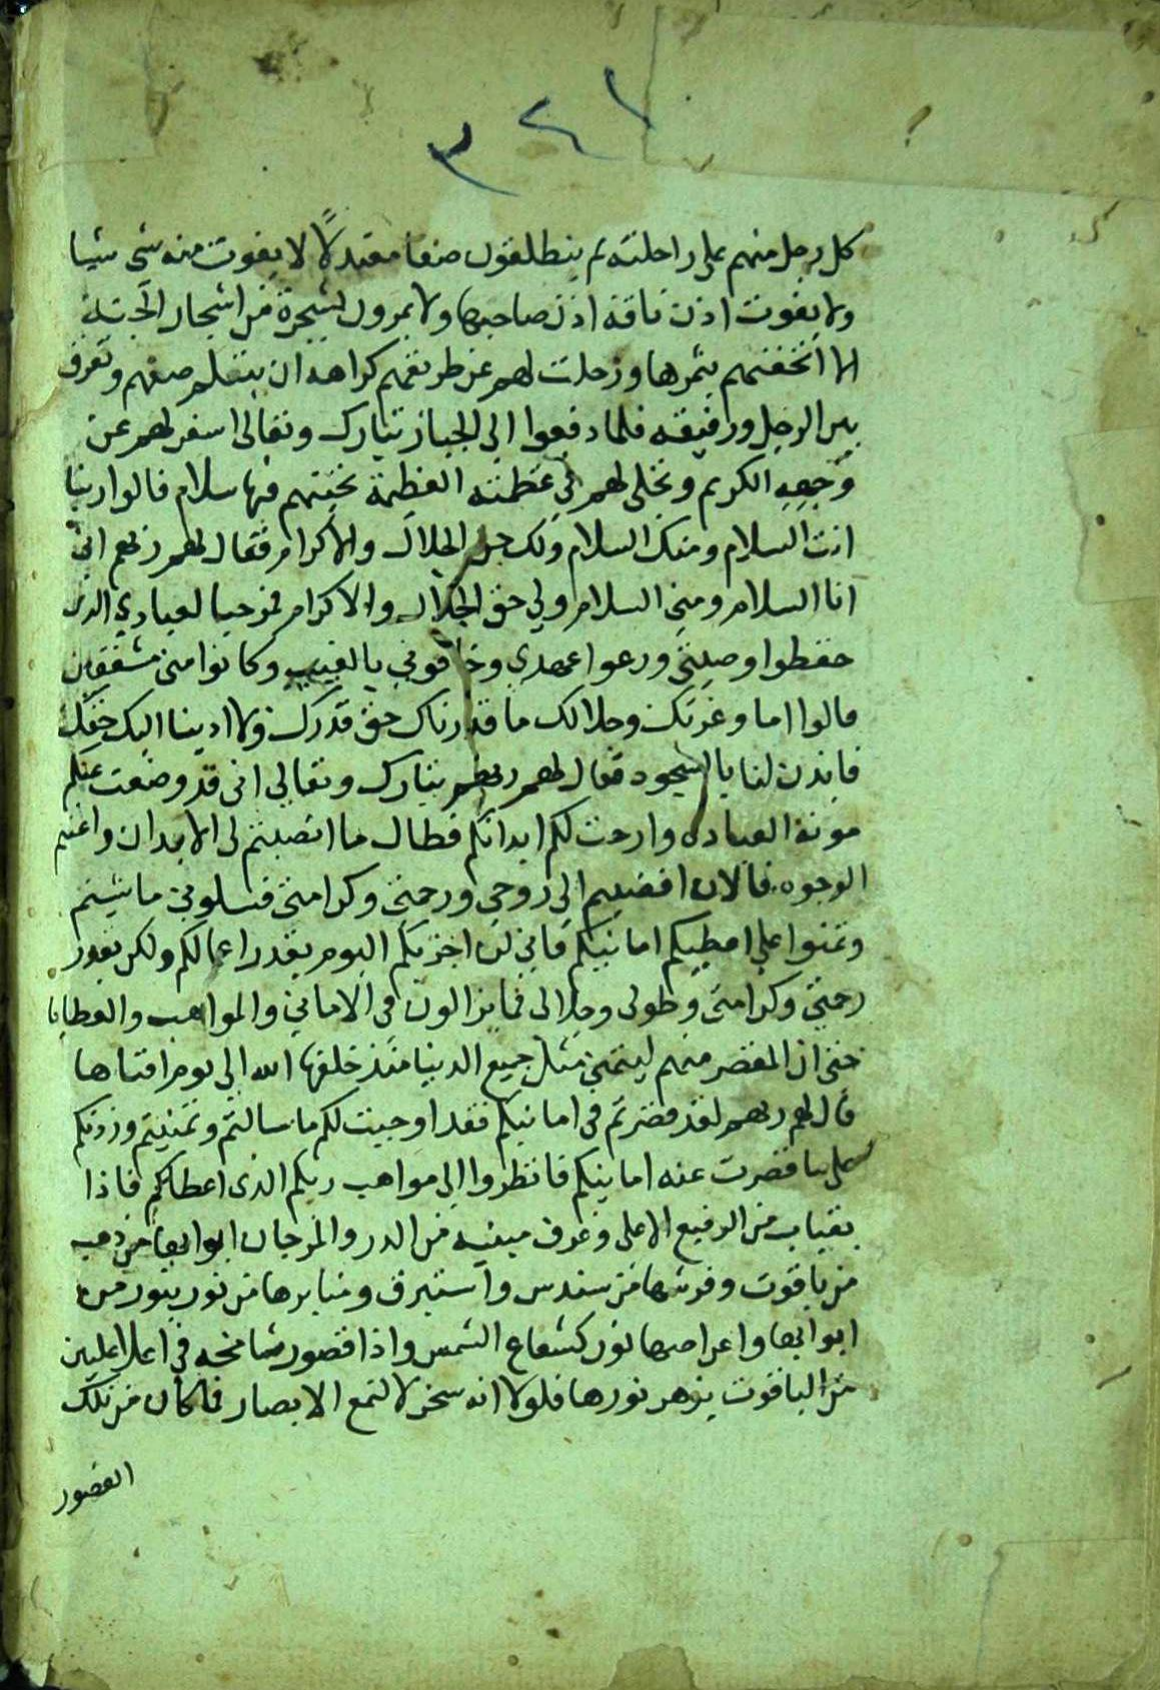 ٣٤١
كل رجل منهم على راحلته ثم ينطلقون صفا معتدلا لا يفوت منه شي شيا
ولا يفوت اذن ناقة اذن صاحبها ولا يمرون بشجرة من اشجار الجنة
الا اتحفتهم بثمرها وزحلت لهم عن طريقهم كراهة ان ينثلم صفهم وتفرق
بين الرجل ورفيقه فلما دفعوا الى الجبار تبارك وتعالى اسفر لهم عن
وجهه الكريم وتجلى لهم في عظمته العظيمة تحيتهم فيها سلام قالوا ربنا
انت السلام ومنك السلام ولك حق الجلال والاكرام فقال لهم ربهم اني
انا السلام ومني السلام ولي حق الجلال والاكرام فمرحبا لعبادي الذين
حفظوا وصيتي ورعوا عهدي وخافوني بالغيب وكانوا مني مشفقين
قالوا اما وعزتك وجلالك ما قدرناك حق قدرك ولا ادينا اليك حقك
فايذن لنا بالسجود فقال لهم ربهم تبارك وتعالى انى قد وضعت عنكم
مونة العبادة وارحت لكم ابدانكم فطال ما انصبتم لى الابدان واعنتم
الوجوه فالان افضيتم الى روحي ورحمتي وكرامتي فسلوني ما شيتم
وتمنوا علي اعطيكم امانيكم فاني لن اجزيكم اليوم بقدر اعمالكم ولكن بقدر
رحمتي وكرامتي وطولى وجلالى فما يزالون فى الاماني والمواهب والعطايا
حتى ان المقصر منهم ليتمنى مثل جميع الدنيا منذ خلقها الله الى يوم افناها
قال لهم ربهم لقد قصرتم فى امانيكم فقد اوجبت لكم ما سالتم وتمنيتم وزدتكم
على ما قصرت عنه امانيكم فانظروا الى مواهب ربكم الذى اعطاكم فاذا
بقباب من الرفيع الاعلى وغرف مبنية من الدر والمرجان ابوابها من ذهب
من ياقوت وفرشها من سندس واستبرق ومنابرها من نور يثور من
ابوابها واعراصها نور كشعاع الشمس واذا قصور شامخه في اعلا عليين
من الياقوت يزهر نورها فلولا انه سخر لالتمع الابصار فما كان من تلك
القصور